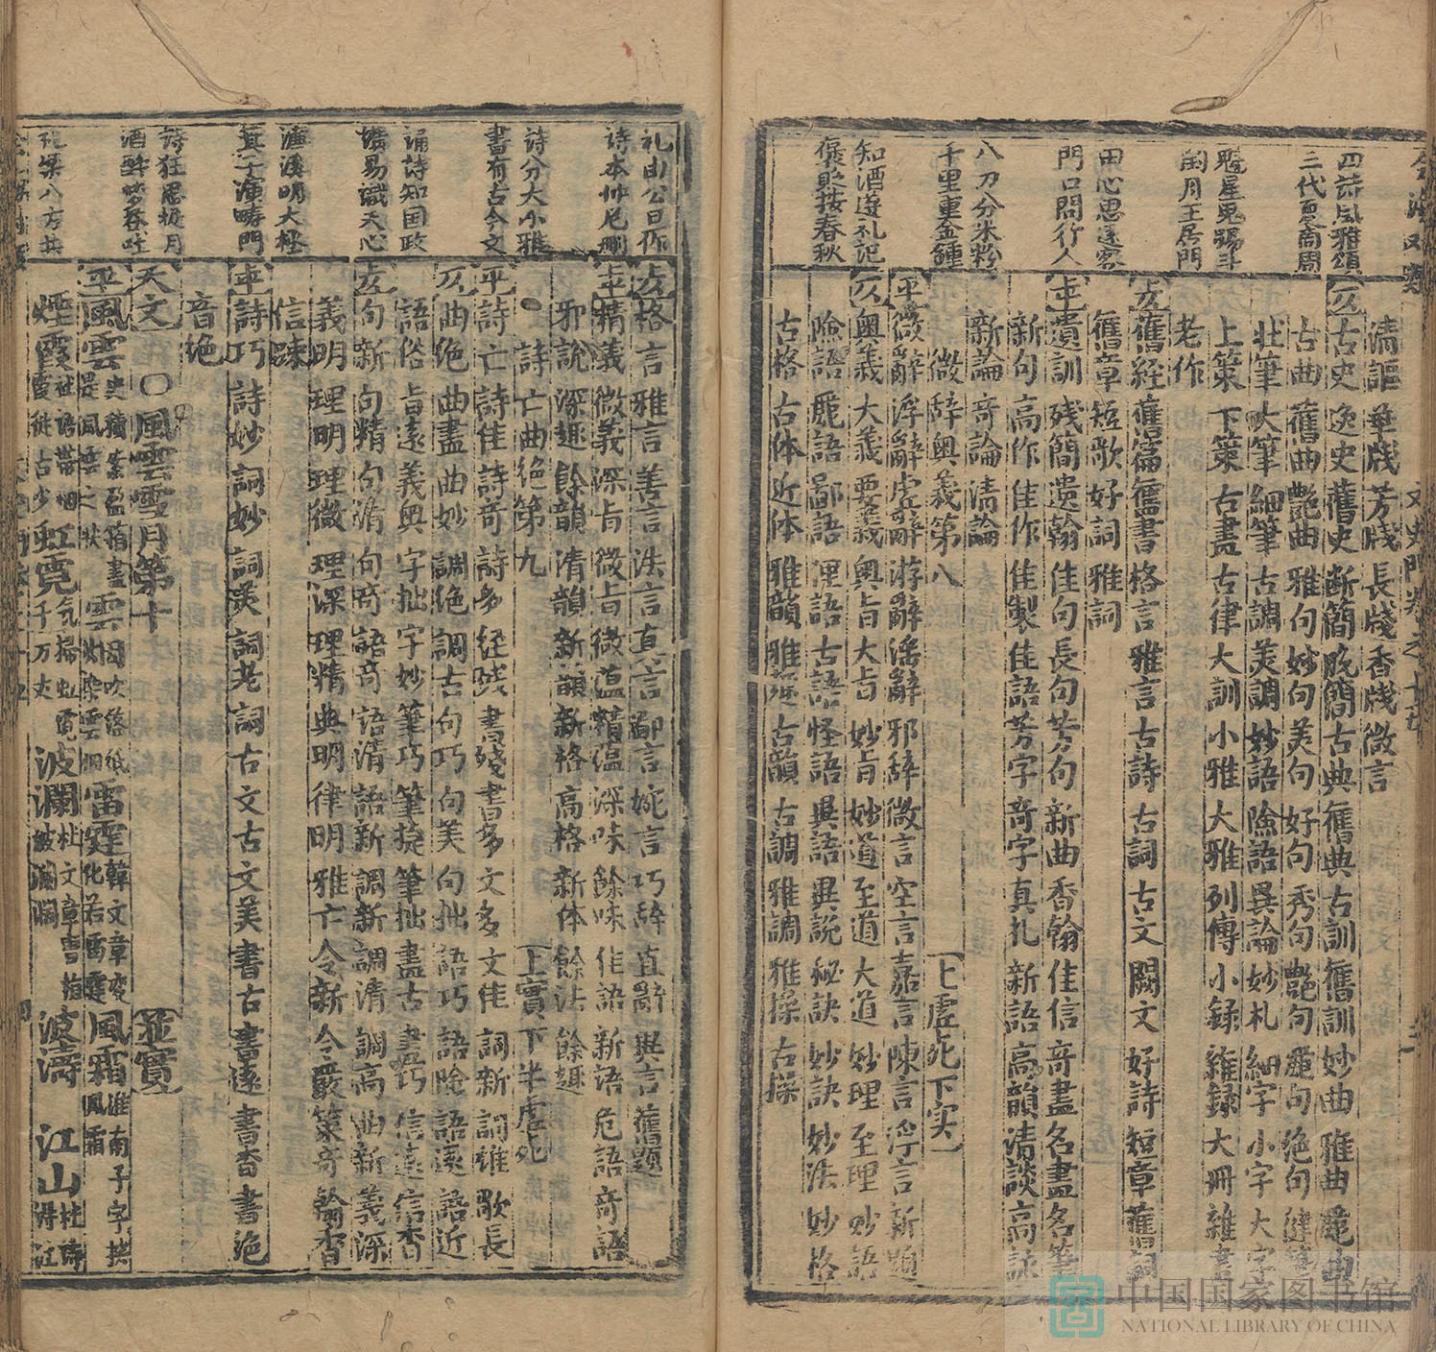 四詩風雅頌
三代夏商周
魁星鬼踢斗
閏月王居門
田心思遠客
門口問行人
八刀分米粉
千里重金鍾
知酒遵礼記
褒貶按春秋
清謳 華牋 芳牋 長牋 香牋 微言
仄 古史 逸史 舊史 断簡 脫簡 古典 舊典 古訓 舊訓 妙曲 雅曲 麗曲
古曲 舊曲 艷曲 雅句 妙句 美句 好句 秀句 艷句 麗句 絶句 健筆
壮筆 大筆 細筆 古調 美調 妙語 險語 異論 妙札 細字 小字 大字
上策 下策 古畫 古律 大訓 小雅 大雅 列傳 小録 雜録 大冊 雜書
老作
去 舊經 舊篇 舊書 格言 雅言 古詩 古詞 古文 闕文 好詩 短章 舊詞
舊章 短歌 好詞 雅詞
平 遺訓 残簡 遺翰 佳句 長句 芳句 新曲 香翰 佳信 奇畫 名畫 名筆
新句 高作 佳作 佳製 佳語 芳字 奇字 真札 新語 高韻 清談 高詠
新論 奇論 清論
微辞奥義第八 上虛死下实
平 微辭 浮辭 虛辭 游辭 淫辭 邪辞 微言 空言 嘉言 陳言 浮言 新題
仄 奥義 大義 要義 奥旨 大旨 妙旨 妙道 至道 大道 妙理 至理 妙語
險語 麗語 鄙語 俚語 古語 怪語 異語 異説 秘訣 妙訣 妙法 妙格
古格 古体 近体 雅韻 雅趣 古韻 古調 雅調 雅操 古操
礼由公旦作
詩本仲尼刪
詩分大小雅
書有古今文
誦詩知国政
講易識天心
濂溪明大極
箕子演疇門
詩狂思捉月
酒醉夢吞吐
去 格言 雅言 善言 法言 直言 鄙言 婉言 巧辞 直辭 異言 舊題
平 精義 微義 深旨 微旨 微蕴 精蕴 深味 餘味 佳語 新語 危語 奇語
邪説 深趣 餘韻 清韻 新韻 新格 高格 新体 餘法 餘趣
詩亡曲绝第九 上實下半虚死
平 詩亡 詩佳 詩奇 詩多 經残 書殘 書多 文多 文佳 詞新 詞雅 歌長
仄 曲绝 曲盡 曲妙 調绝 調古 句巧 句美 句拙 語巧 語險 語遠 語近
語俗 旨遠 義奥 字拙 字妙 筆巧 筆捷 筆拙 畫古 畫巧 信遠 信杳
去 句新 句精 句清 句奇 語奇 語清 語新 調新 調清 調高 曲新 義深
義明 理明 理微 理深 理精 典明 律明 雅亡 令新 令嚴 策奇 翰香
信疎
平 詩巧 詩妙 詞妙 詞美 詞老 詞古 文古 文美 書古 書遠 書香 書绝
音绝
天文 ○風雲雪月第十 並實
平 風雲 雲 雷霆 韓文章変化若雷霆 風霜 淮南子字挟風霜
煙霞 虹霓 波瀾 杜文章曹植波瀾闊 波濤 江山 杜詩得江